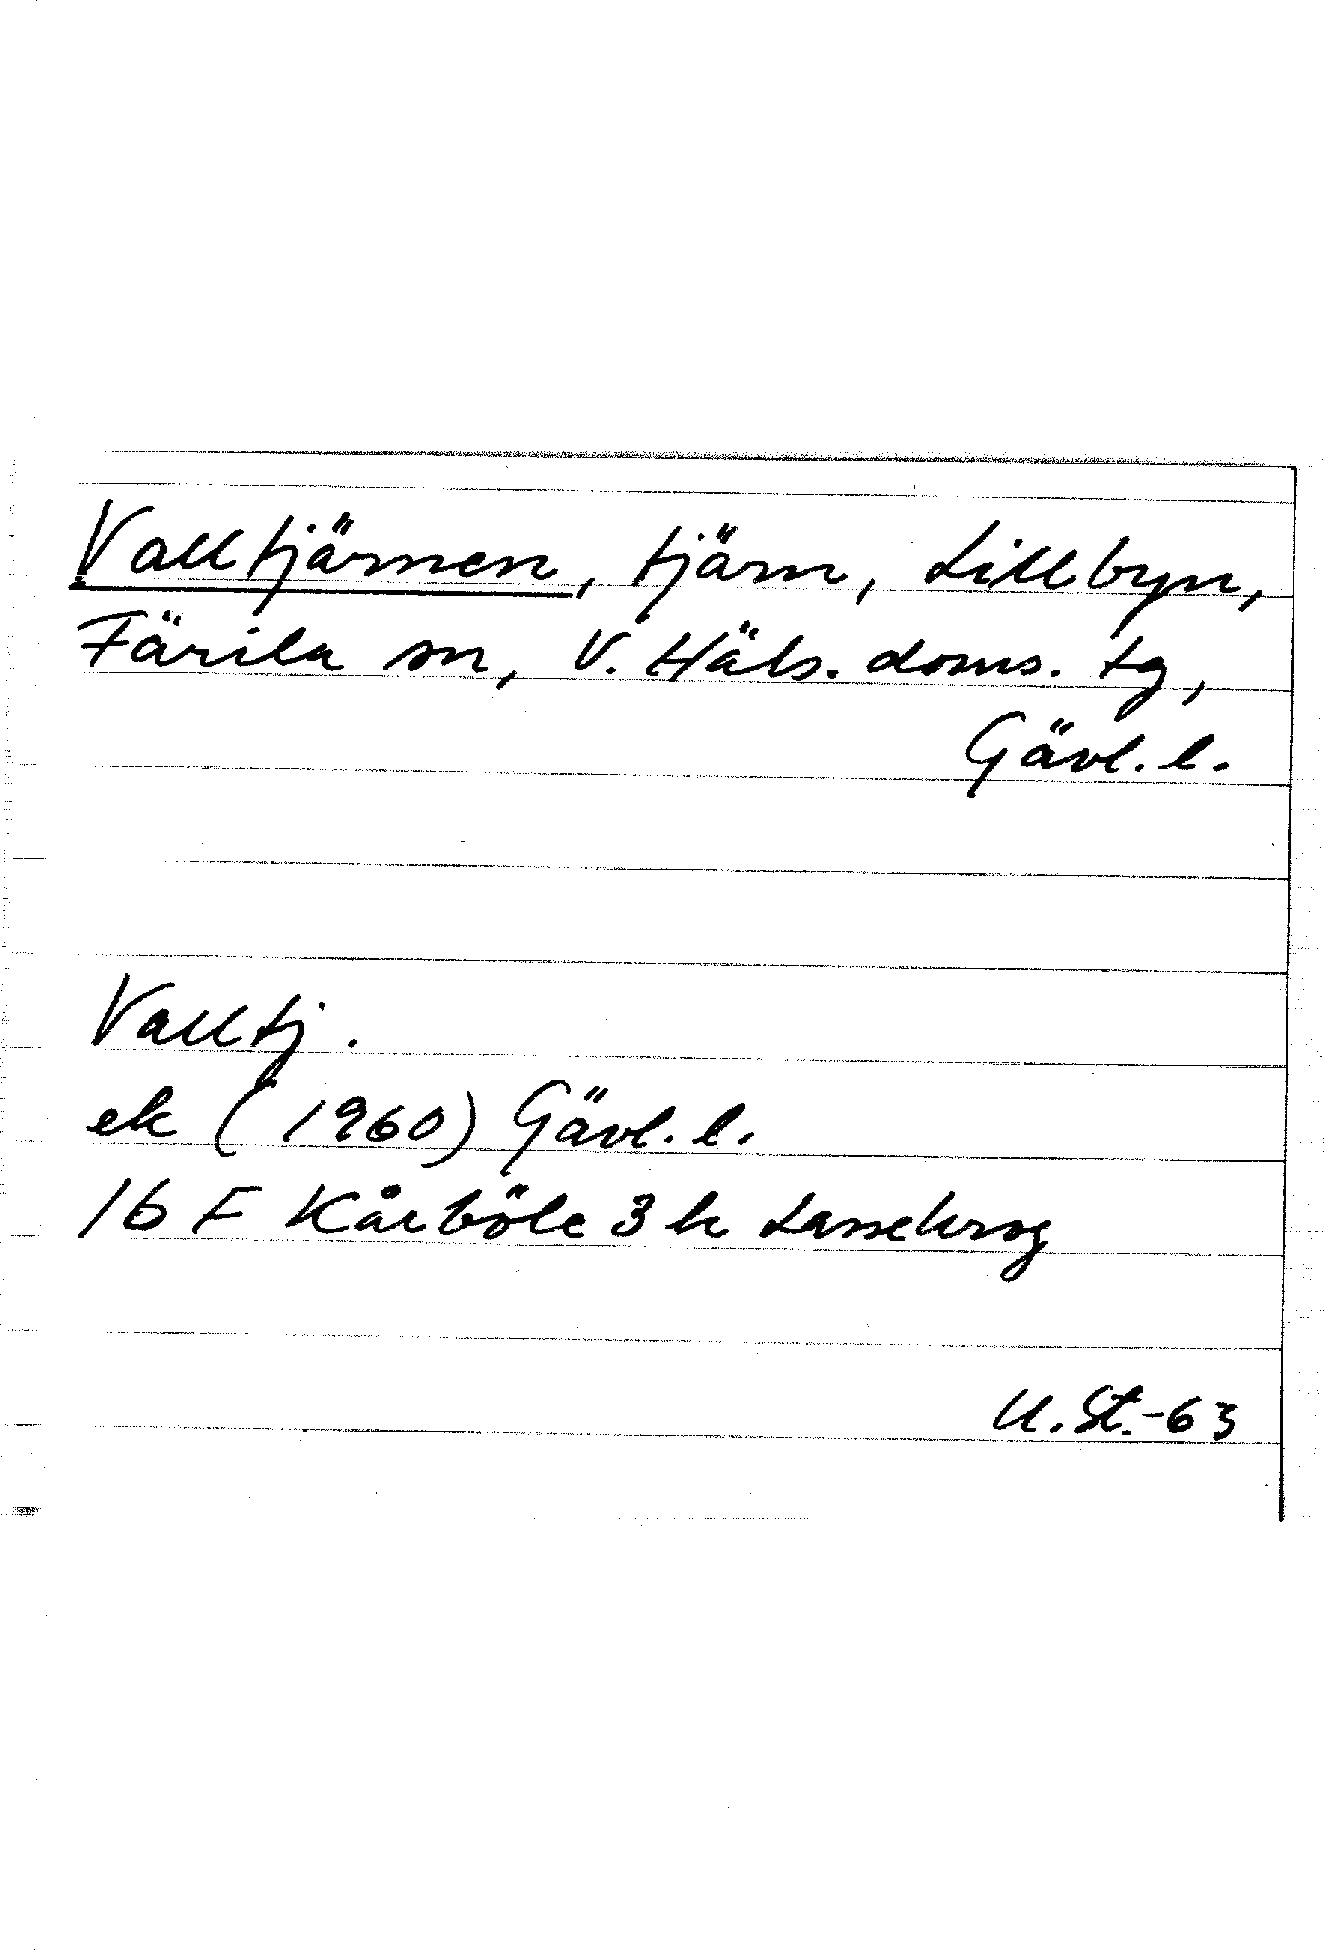 Valltjärnen, tjärn, Lillbyn,
Färila sn, V. Häls. doms. tg,
Gävl. l.
Valltj.
ek (1960) Gävl. l.
16 F Kårböle 3 h Lassekrog
U. St.-63